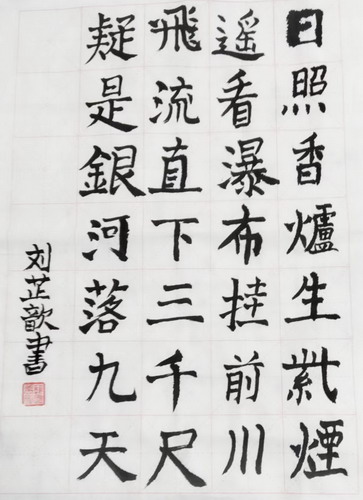 日照香爐生紫煙
遥看瀑布挂前川
飛流直下三千尺
疑是銀河落九天
刘芷歆書